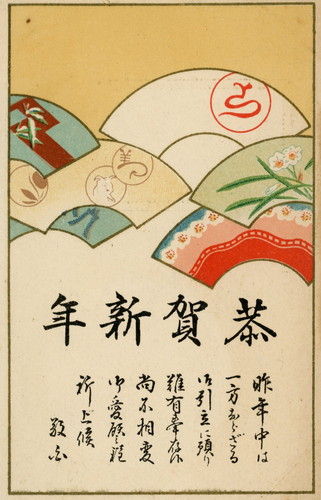 恭賀新年
昨年中は
一方ならざる
御引立に預り
難有奉存候
尚不相変
御愛顧之程
祈上候
敬白